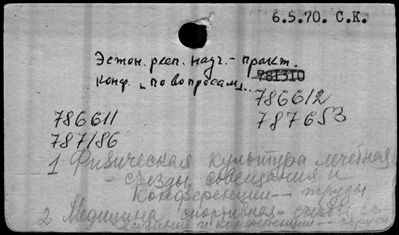 6.5.70. С.К.
Эстон. респ. науч.- практ.
конф. „по вопросам...
781310
786612
786611
787653
787186
1 Физическая культура лечебная
- съезды, совещания и
конференции -- труды
2 Медицина спортивная - съезды